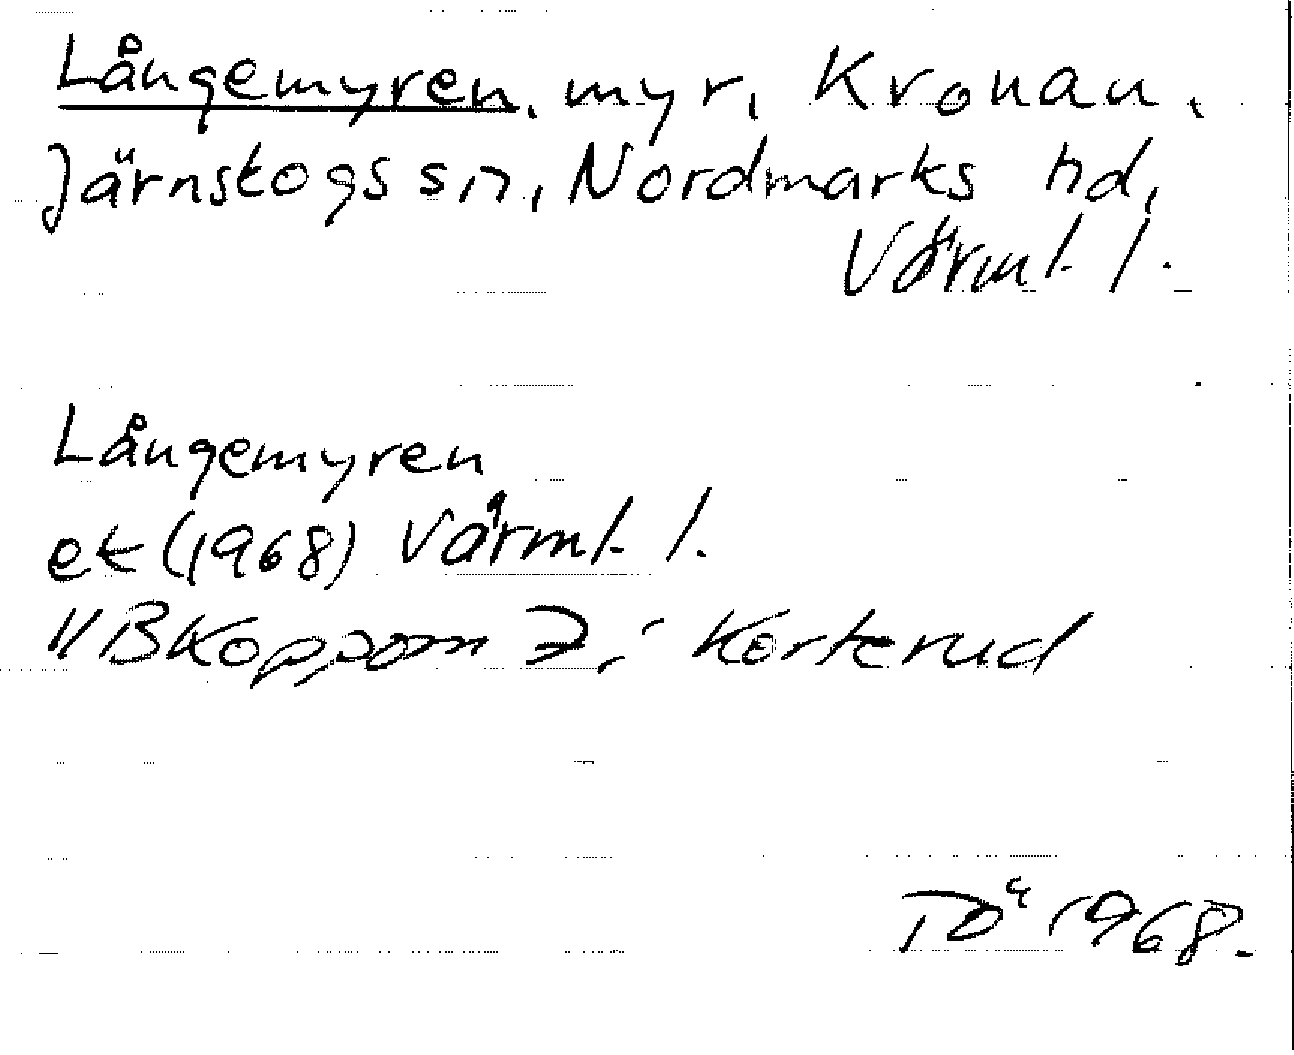 Långemyren, myr, Kronan,
Järnskogs sn, Nordmarks hd,
Värml. l.
Långemyren
ek (1968) Värml. l.
11B Koppom 7; Korterud
TÖ 1968.